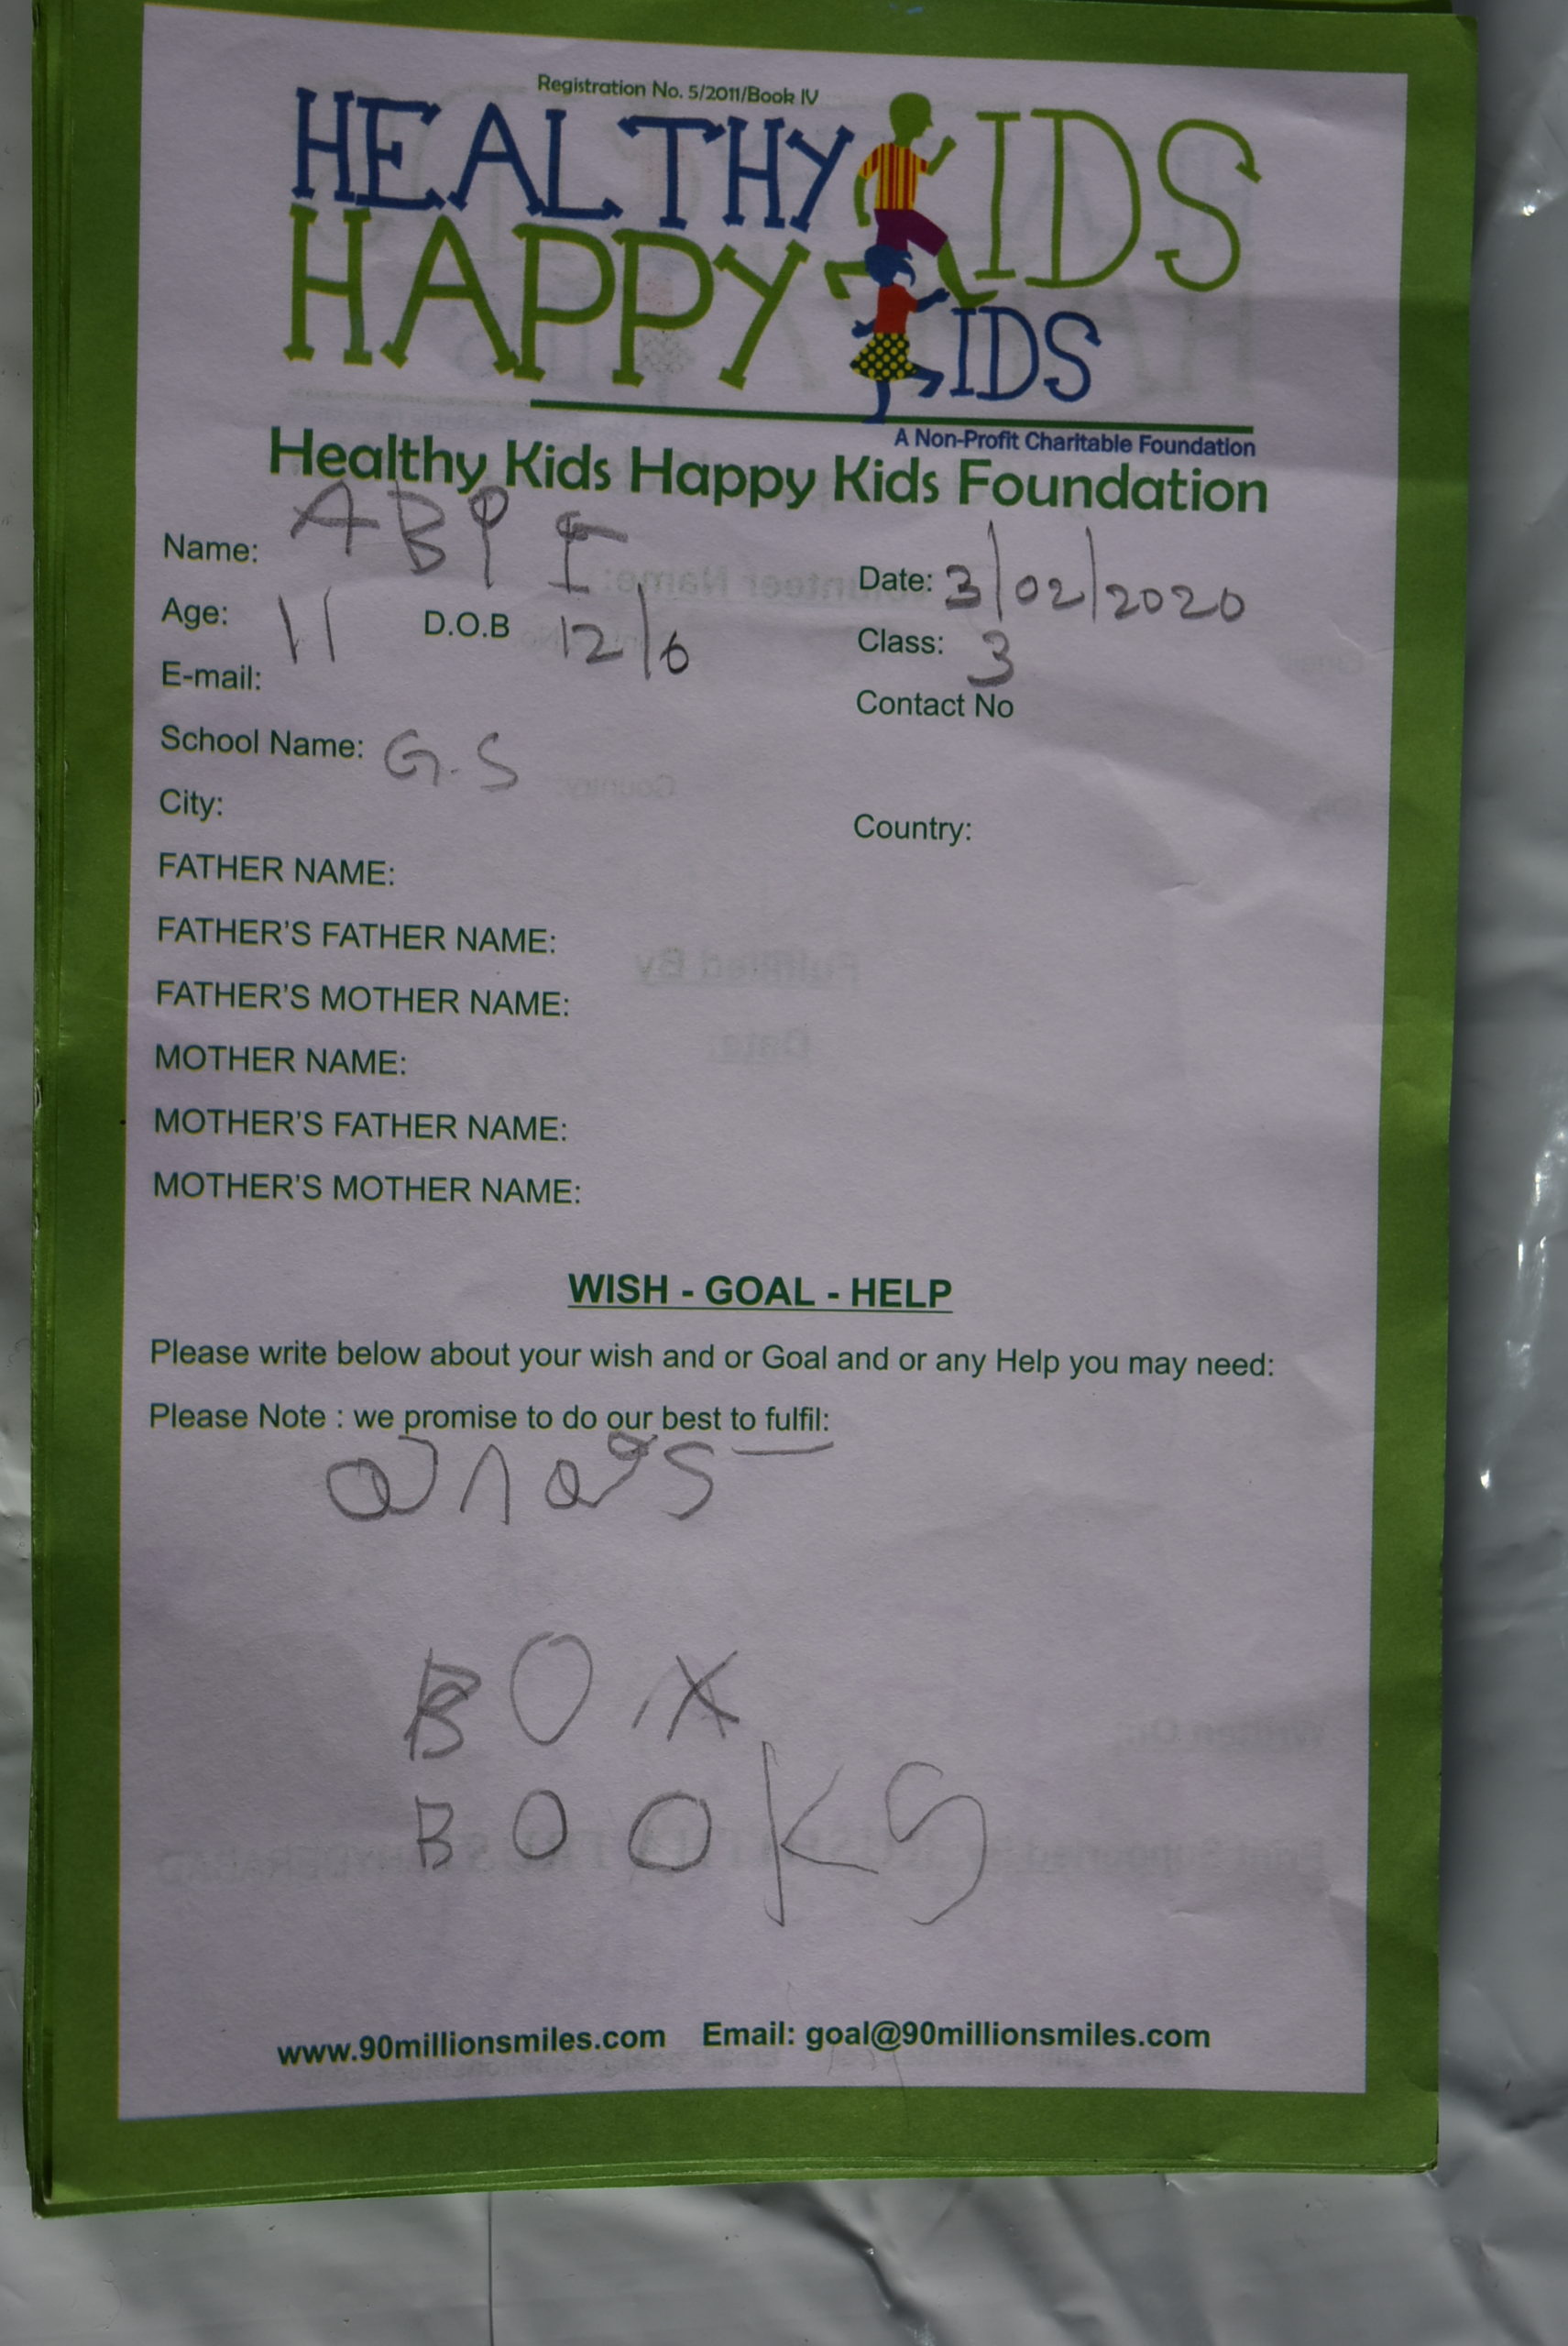 Registration No. 5/2011/Book IV
HEALTHY KIDS
HAPPY KIDS
A Non-Profit Charitable Foundation
Healthy Kids Happy Kids Foundation
Name:
Date: 3/02/2020
Age: 11 D.O.B 12/6
Class: 3
E-mail:
Contact No
School Name: G.S
City:
Country:
FATHER NAME:
FATHER'S FATHER NAME:
FATHER'S MOTHER NAME:
MOTHER NAME:
MOTHER'S FATHER NAME:
MOTHER'S MOTHER NAME:
WISH - GOAL - HELP
Please write below about your wish and or Goal and or any Help you may need:
Please Note : we promise to do our best to fulfil:
BOX
BOOKS
www.90millionsmiles.com Email: goal@90millionsmiles.com